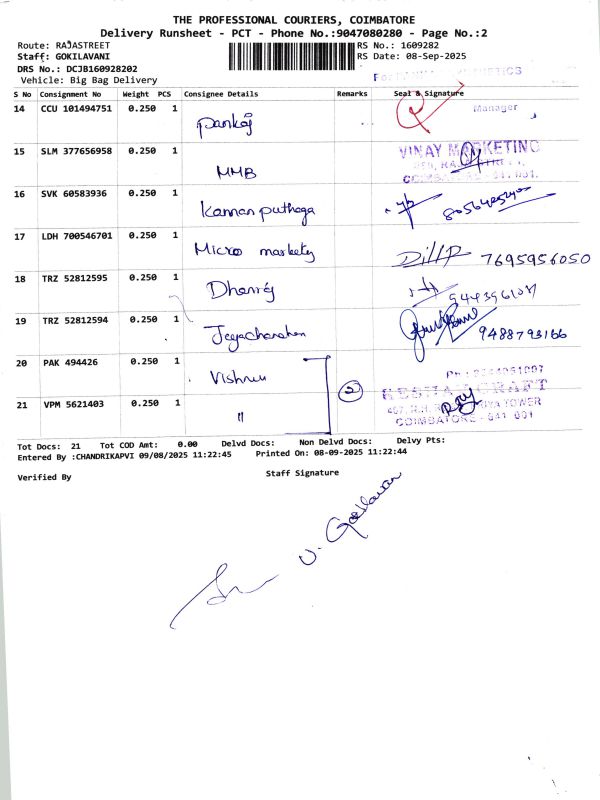 THE PROFESSIONAL COURIERS, COIMBATORE
Delivery Runsheet - PCT - Phone No.:9047080280 - Page No.:2
Route: RAJASTREET RS No.: 1609282
Staff: GOKILAVANI RS Date: 08-Sep-2025
DRS No.: DCJB160928202
Vehicle: Big Bag Delivery
S No Consignment No Weight PCS Consignee Details Remarks Seal & Signature
14 CCU 101494751 0.250 1 Pankaj Manager
15 SLM 377656958 0.250 1 MMB VINAY MARKETING
16 SVK 60583936 0.250 1 Kannan puthaga
17 LDH 700546701 0.250 1 Micro markety Dillip 7695956050
18 TRZ 52812595 0.250 1 Dhanraj
19 TRZ 52812594 0.250 1 Jeyachandran 9488793166
20 PAK 494426 0.250 1 Vishnu
21 VPM 5621403 0.250 1 " 2
TOWER
COIMBATORE - 641 001
Tot Docs: 21 Tot COD Amt: 0.00 Delvd Docs: Non Delvd Docs: Delvy Pts:
Entered By :CHANDRIKAPVI 09/08/2025 11:22:45 Printed On: 08-09-2025 11:22:44
Verified By Staff Signature
V. Gokilavani